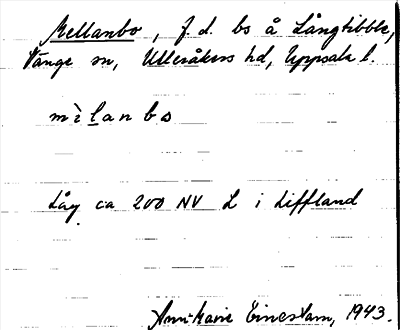 Mellanbo, f.d. bs å Långtibble,
Vänge sn, Ulleråkers hd, Uppsala l.
mèlanbo
Låg ca 200 NV L i Liffland
Ann-Marie Einestam, 1943.